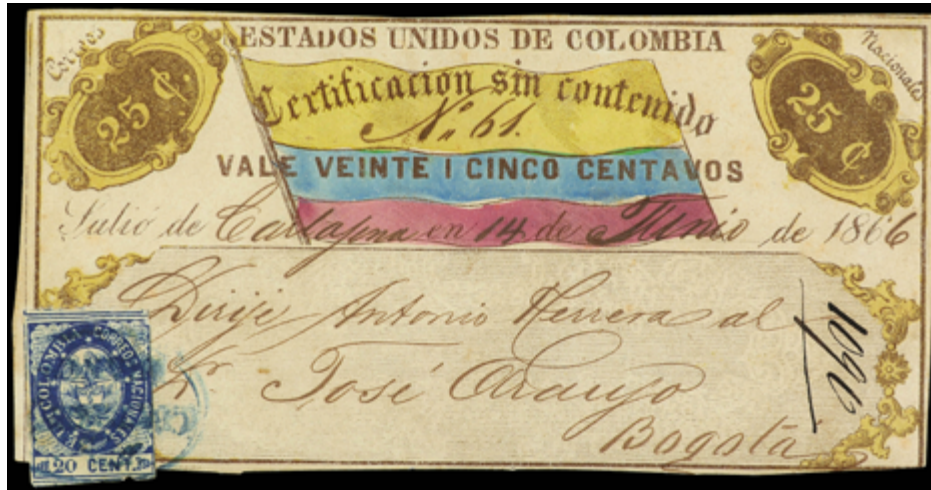 Correos
Nacionales
ESTADOS UNIDOS DE COLOMBIA
25 ¢
25 ¢
Certificacion sin contenido
No. 61.
VALE VEINTE I CINCO CENTAVOS
Salió de Cartajena en 14 de Junio de 1866
Dirije Antonio Herrera al
Sr José Araujo
Bogotá
E. U. DE COLOMBIA CORREOS NACIONALES
20 CENT.